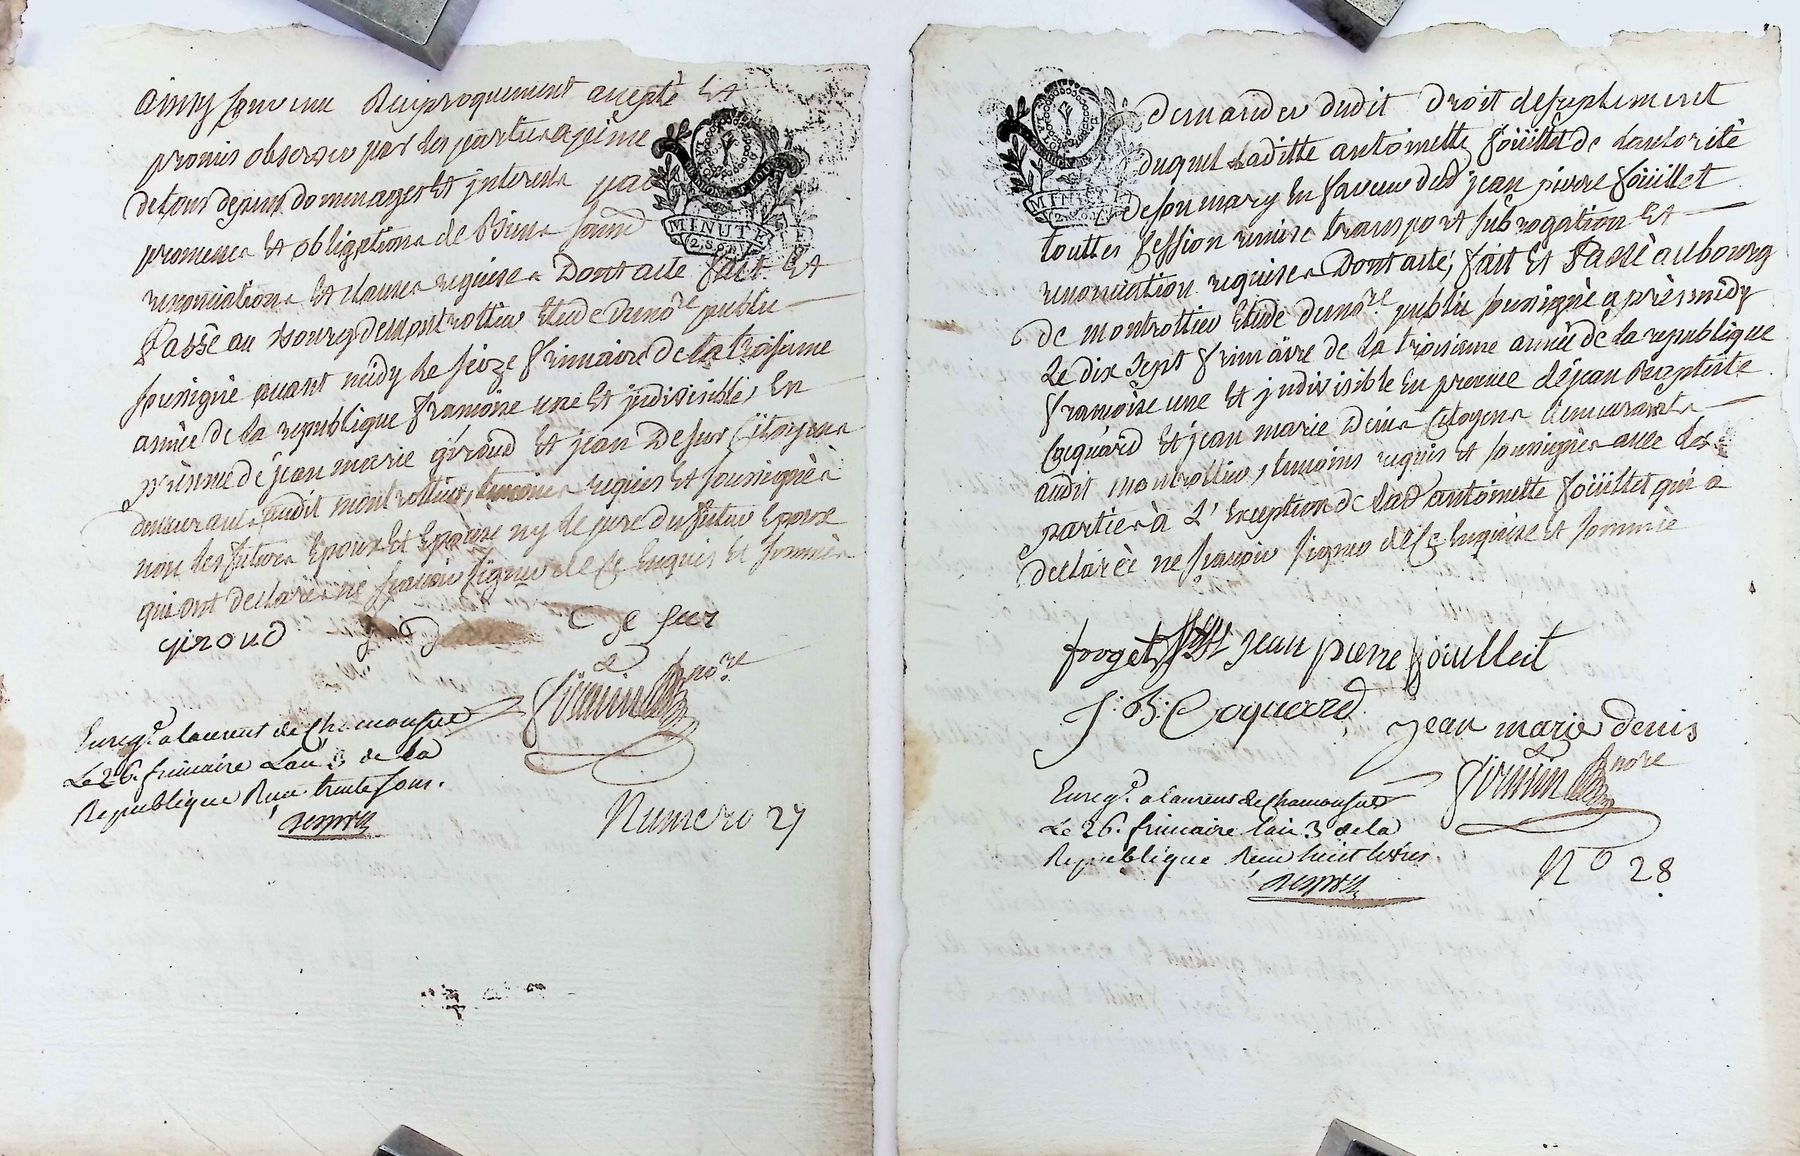 ainsy convenu Reciproquement accepté Et
promis observer par les parties a peine
de tous depens dommages Et interets par
promesses Et obligations de Biens soumis
renonciations Et clauses requises Dont acte fait Et
Passé au Bourg de Montrottier Etude du no.re public
soussigné avant midy Le seize frimaire De la troisieme
année De la republique françoise une Et jndivisible, En
présence de jean marie giroud Et jean Defur Citoyens
demeurants audit montrottier, temoins requis Et soussignés
non les futurs Epoux Et Epouse ny le pere du futur Epoux
qui ont declaré ne sçavoir signer de ce Enquis Et sommés
giroud
de fur
firmin no.re
Enreg.é a Laurent de Chamousset
Le 26. frimaire L'an 3 de la
Republique Recu trente sous.
Numero 27
MINUTE
2. S.
demander dudit Droit de suplement
duquel Laditte antoinette foüillet de Lautorité
de son mary En faveur dud. jean pierre foüillet
touttes Cession remise transport subrogation Et
renonciation requises Dont acte, fait Et Passé au bourg
de montrottier Etude du no.re public soussigné après midy
Le dix sept frimaire de la troisieme année de la republique
françoise une Et jndivisible En presence de jean Baptiste
Coquard Et jean marie Denis Citoyens demeurants
audit montrottier, temoins requis Et soussignés avec les
parties à L'Exception de lad. antoinette foüillet qui a
declarée ne sçavoir signer de ce Enquise Et sommée
froget jean pierre fouilleit
J: B: Coquard jean marie denis
firmin nore
Enreg.é a Laurent de Chamousset
Le 26. frimaire l'an 3 de la
Republique Recu huit livres
N° 28
MINUTE
2. S.